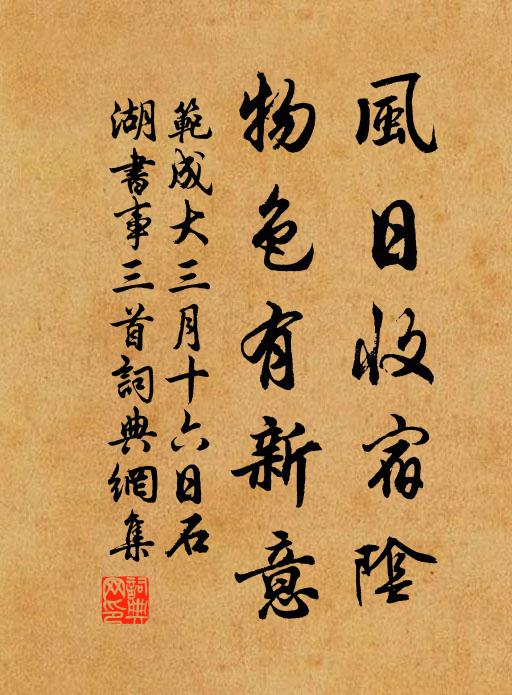 風日收宿陰
物色有新意
範成大三月十六日石
湖書事三首詞典網集
詞典
网印